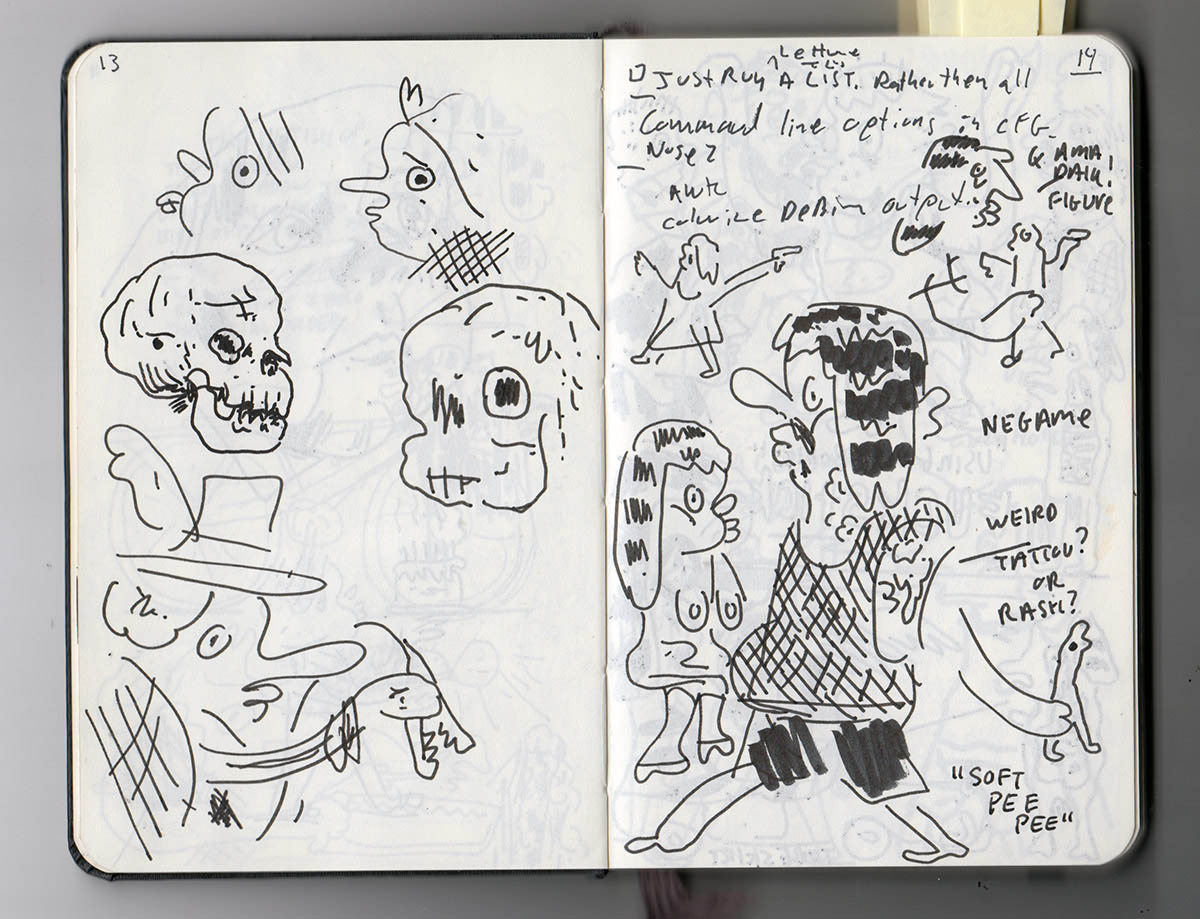 13
14
JUST RUN A LIST. Rather then all
Command line options in CFG
NOSE?
colorize Debian output
& AMA
DATA!
FIGURE
NEGAME
WEIRD
TATTOO?
OR
RASH?
"SOFT
PEE
PEE"